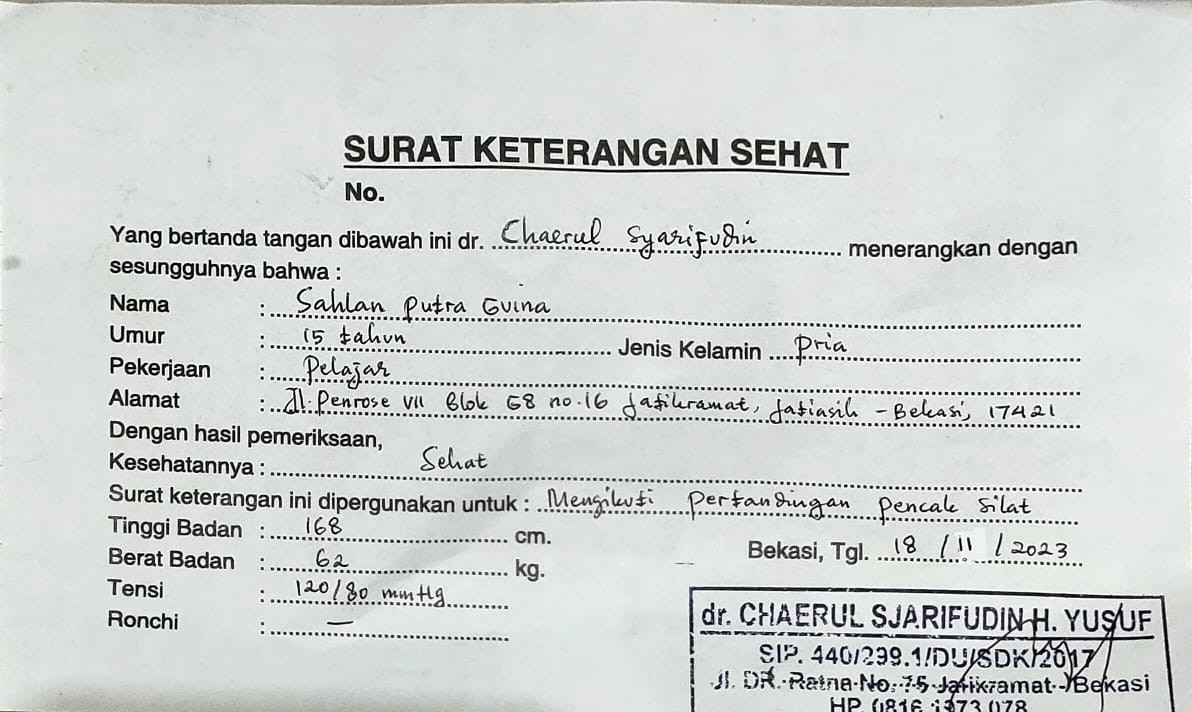 SURAT KETERANGAN SEHAT
No.
Yang bertanda tangan dibawah ini dr. Chaerul Syarifudin menerangkan dengan
sesungguhnya bahwa :
Nama : Sahlan Putra Gvina
Umur : 15 tahun Jenis Kelamin Pria
Pekerjaan : Pelajar
Alamat : Jl. Penrose VII Blok G8 no.16 Jatikramat, Jatiasih - Bekasi, 17421
Dengan hasil pemeriksaan,
Kesehatannya : Sehat
Surat keterangan ini dipergunakan untuk : Mengikuti Pertandingan Pencak Silat
Tinggi Badan : 168 cm.
Berat Badan : 62 kg.
Bekasi, Tgl. 18 / 11 / 2023
Tensi : 120/80 mmHg
Ronchi : —
dr. CHAERUL SJARIFUDIN H. YUSUF
SIP. 440/299.1/DU/SDK/2017
Jl. DR. Ratna No. 75 Jatikramat - Bekasi
HP. 0816 1373 078